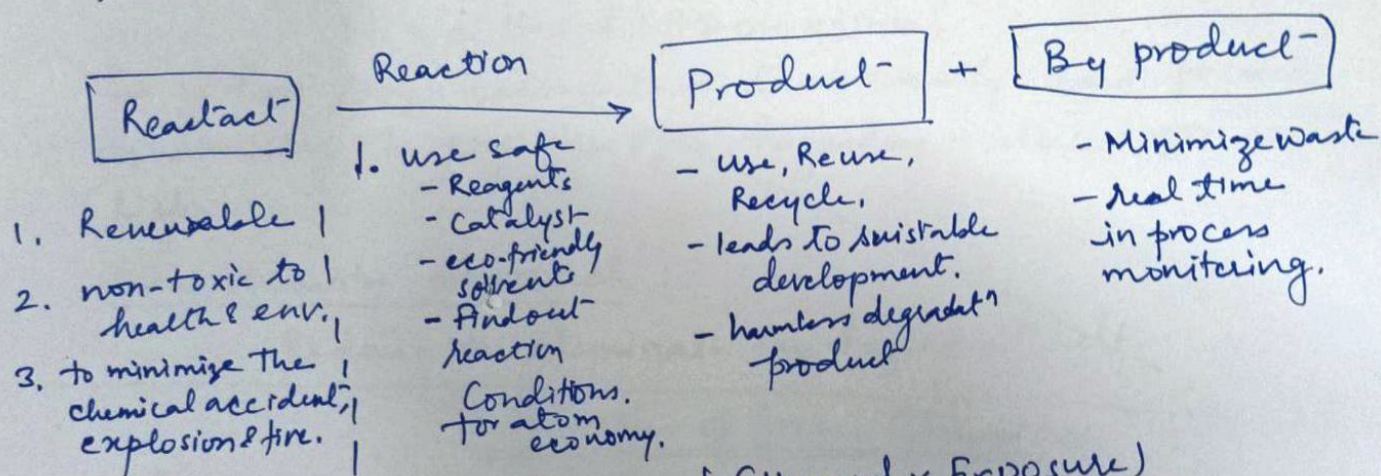 Reactact
Reaction
Product + By product
1. Renewable
2. non-toxic to
health & env.
3. to minimize the
chemical accident,
explosion & fire.
1. use safe
- Reagents
- Catalyst
- eco-friendly
solvents
- Find out
reaction
Conditions.
for atom
economy.
- use, Reuse,
Recycle.
- leads to suistable
development.
- harmless degradatⁿ
product
- Minimize waste
- real time
in process
monitering.
Exposure)